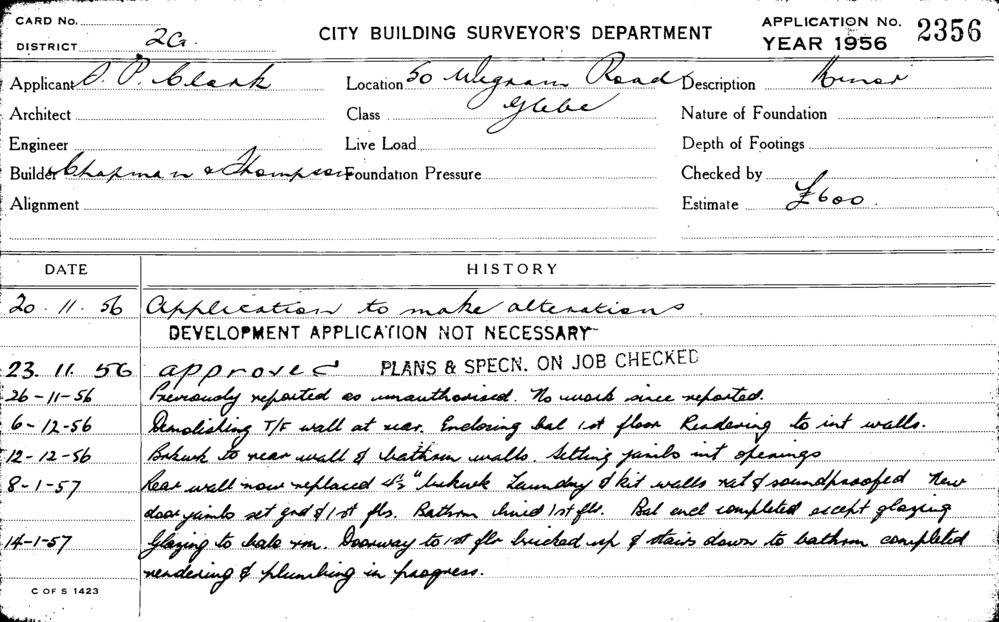 CARD No.
DISTRICT 2G.
CITY BUILDING SURVEYOR'S DEPARTMENT
APPLICATION No. 2356
YEAR 1956
Applicant O. P. Clark
Location 50 Wigram Road
Glebe
Description Minor
Architect
Class
Nature of Foundation
Engineer
Live Load
Depth of Footings
Builder Chapman & Thompson
Foundation Pressure
Checked by
Alignment
Estimate £600
DATE HISTORY
20. 11. 56 Application to make alterations.
DEVELOPMENT APPLICATION NOT NECESSARY
23. 11. 56 approved PLANS & SPECN. ON JOB CHECKED
26-11-56 Previously reported as unauthorised. No work since reported.
6-12-56 Demolishing T/F wall at rear. Enclosing bal 1st floor Rendering to int walls.
12-12-56 Bekwk to rear wall & bathrm walls. Setting jambs int openings
8-1-57 Rear wall now replaced 4½" bekwk Laundry & kit walls rat & soundproofed New
door jambs set gnd & 1st fls. Bathrm lined 1st flr. Bal encl completed except glazing
14-1-57 Glazing to balc rm. Doorway to 1st flr bricked up & stairs down to bathrm completed
rendering & plumbing in progress.
C OF S 1423